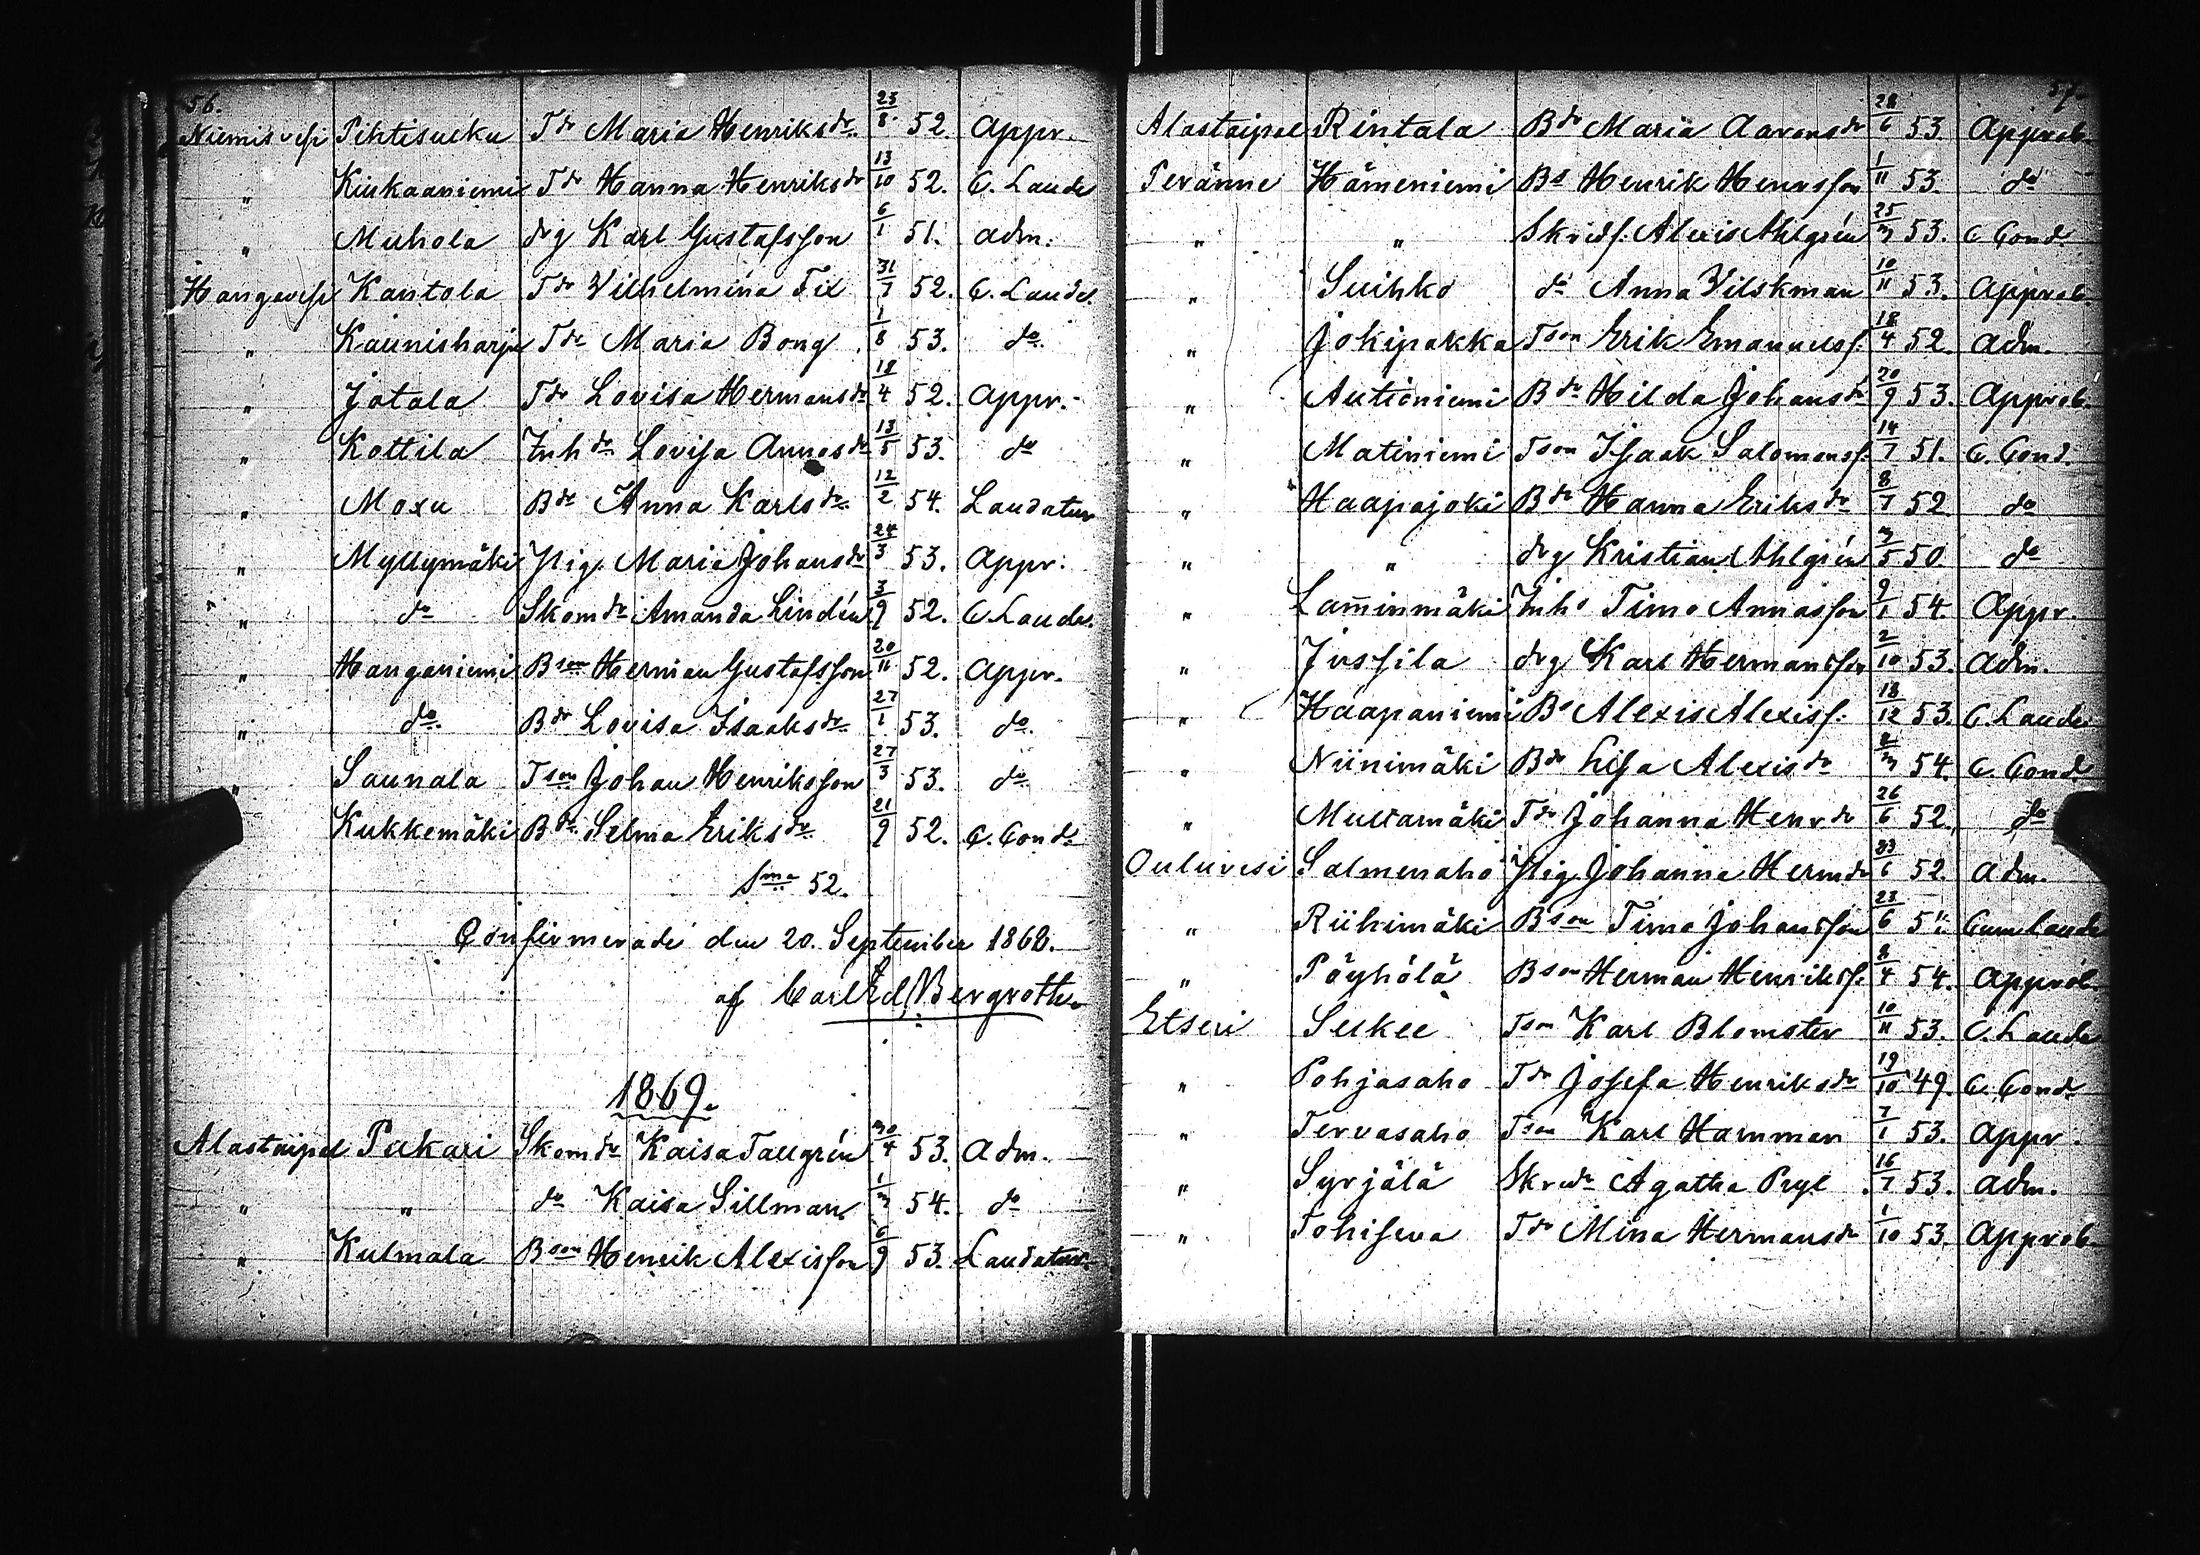 56.
Niemisvesi Pihtisulku Tdr Maria Henriksdr 23/8 52. Appr.
" Kiukaaniemi Tdr Hanna Henriksdr 13/10 52. C. Laude
" Muhola drg Karl Gustafsson 6/1 51. adm.
Hangavesi Kantola Tdr Vilhelmina Fil 31/7 52. C. Laude
" Kaunisharju Tdr Maria Bong 1/8 53. do
" Jatala Tdr Lovisa Hermansdr 18/4 52. Appr.
" Kottila Inhdr Lovisa Annasdr 13/5 53. do
" Moxu Bdr Anna Karlsdr 12/2 54. Laudatur
" Myllymäki Pig. Maria Johansdr 24/3 53. Appr.
" do Skomdr Amanda Lindén 3/9 52. C. Laude.
" Hanganiemi Bson Herman Gustafsson 20/11 52. Appr.
" do Bdr Lovisa Isaaksdr 27/1 53. do
" Saunala Tson Johan Henriksson 27/3 53. do
Kukkemäki Bdr Selma Eriksdr 21/9 52. C. Cond.
Sma 52.
Confirmerade den 20. September 1868.
af Carl Ed. Bergroth
1869.
Alastaipal Pukari Skomdr Kaisa Tallgrén 30/4 53. Adm.
" " do Kaisa Sillman 1/3 54. do
" Kulmala Bson Henrik Alexisson 6/9 53. Laudatur
57.
Alastaipal Rintala Bdr Maria Aaronsdr 28/6 53 Approb.
Peränne Hämeniemi Bs Henrik Henrsson 1/11 53. do
" " Skreds. Alexis Ahlgrén 25/3 53. C Cond.
" Suihko do Anna Vilskman 10/11 53. Approb.
" Jokipakka Tson Erik Emanuelss. 18/4 52. Adm.
" Autioniemi Bdr Hilda Johansdr 20/9 53. Approb.
" Matiniemi Tson Isaak Salomonss. 14/7 51. C. Cond.
" Haapajoki Bdr Hanna Eriksdr 8/7 52 do
" " drg Kristian Ahlgrén 3/5 50. do
" Lam̄inmäki Inhs Timo Annasson 9/1 54. Appr.
" Jussila drg Karl Hermansson 2/10 53. Adm.
" Haapaniemi Bs Alexis Alexiss. 18/12 53. C. Laude
" Niinimäki Bdr Lisa Alexisdr 2/3 54. C. Cond
" Multamäki Tdr Johanna Henrdr 26/6 52. do
Ouluvesi Salmenaho Pig. Johanna Hermdr 23/6 52. Adm.
" Riihimäki Bson Timo Johansson 23/6 Cum Laude
" Pöyhölä Bson Herman Henrikss. 8/4 54. Approb
Etseri Selkee Tson Karl Blomster 10/11 53. C. Laude
" Pohjasaho Tdr Josefa Henriksdr 19/10 49. C. Cond
" Tervasaho Tson Karl Hamman 7/1 53. Appr.
" Syrjälä Skredr Agatha Pryl 16/7 53. Adm.
" Tohiseva Tdr Mina Hermansdr 1/10 53. Approb